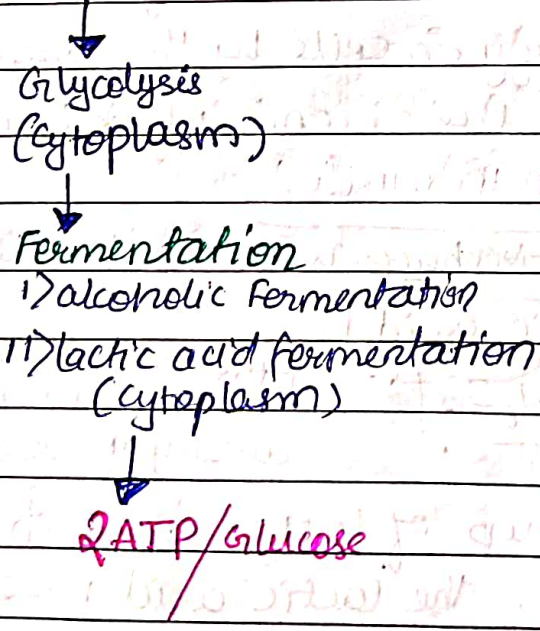 Glycolysis
(Cytoplasm)
Fermentation
I) alcoholic Fermentation
II) lactic acid fermentation
(Cytoplasm)
2ATP/Glucose